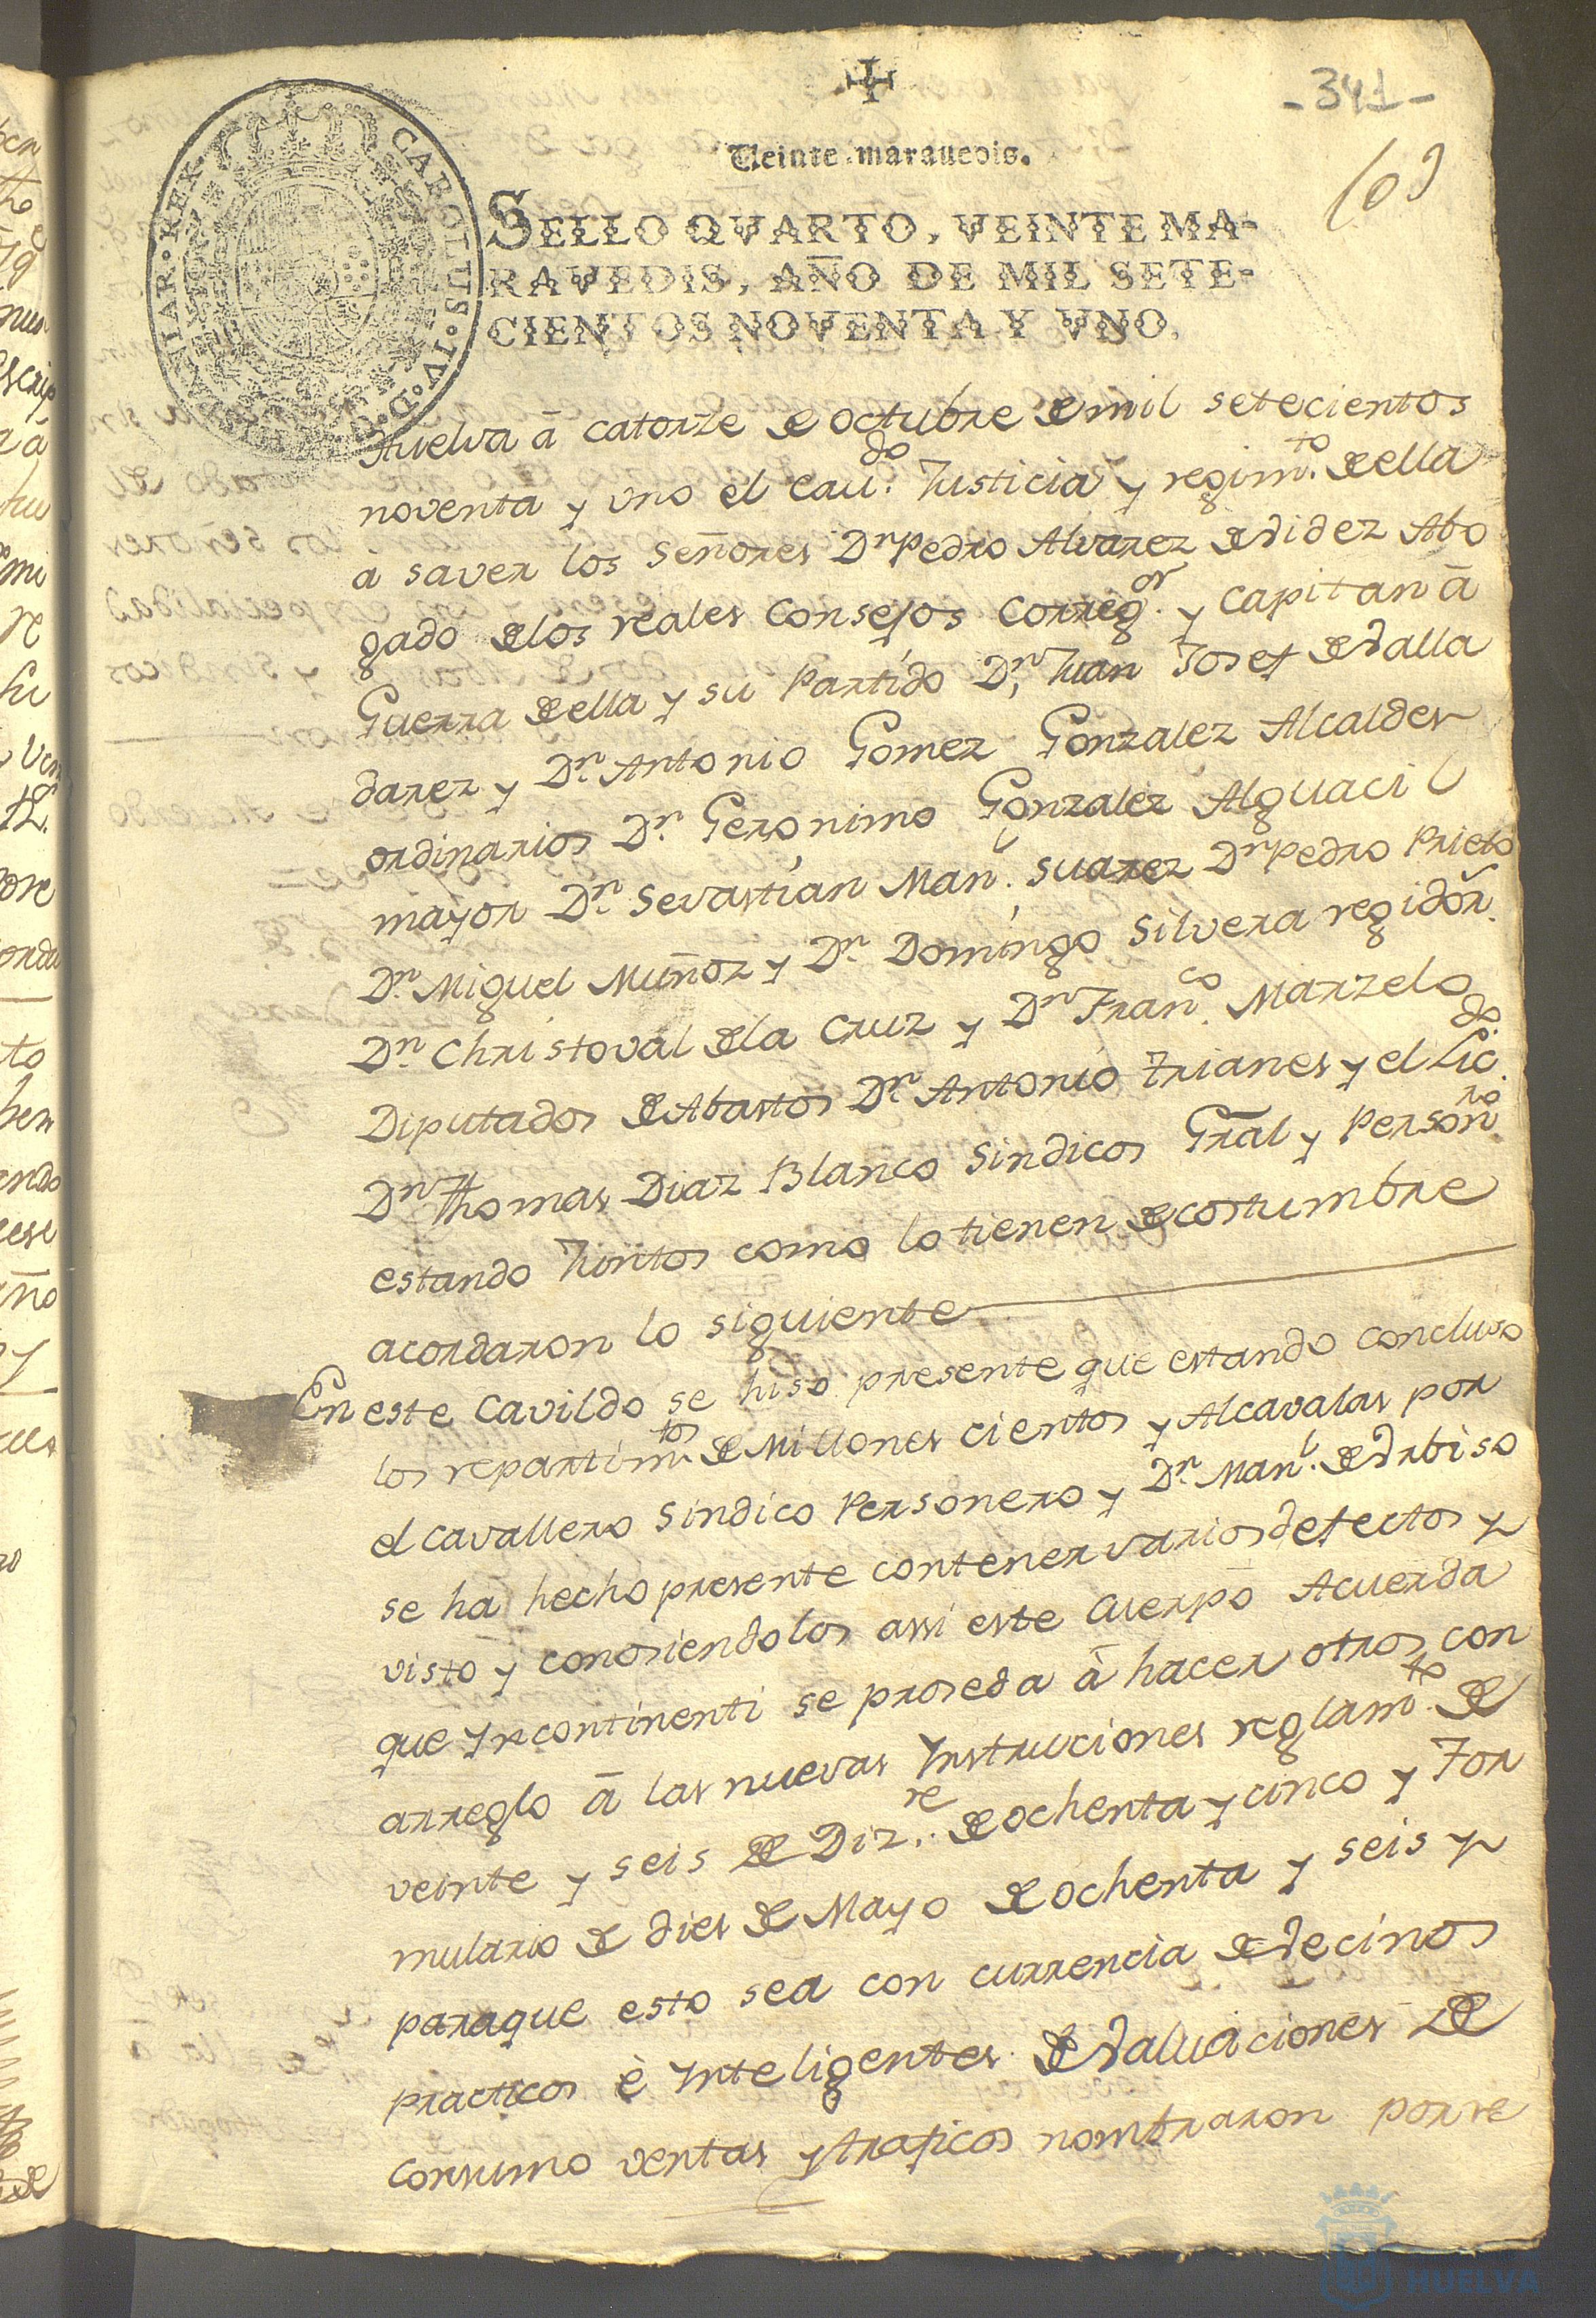 -341-
109
Veinte maravedis.
SELLO QVARTO, VEINTE MA-
RAVEDIS, AÑO DE MIL SETE-
CIENTOS NOVENTA Y VNO.
CAROLUS·IV·D·G· HISPANIAR·REX·
Huelva á catorze de octubre de mil setecientos
noventa y uno el cav.do Justicia y regim.to de ella
a saver los señores Dn Pedro Alvarez de Videz Abo
gado de los reales Consejos Correg.or y capitan á
Guerra de ella y su Partido D.n Juan Josef de Valla
darez y D.n Antonio Gomez Gonzalez Alcaldes
ordinarios D.n Geronimo Gonzalez Alguacil
mayor D.n Sevastian Man.l Suarez Dn Pedro Prieto
D.n Miguel Muñoz y D.n Domingo Silvera regidor.s
D.n Christoval de la Cruz y Dn Fran.co Marzelo
Diputados de Abastos D.n Antonio Trianes y el Lic.do
Dn Thomas Diaz Blanco Sindicos Gral y Person.ro
estando Juntos como lo tienen de costumbre
acordaron lo siguiente
En este Cavildo se hiso presente que estando concluso
los repartim.tos de Millones cientos y Alcavalas por
el cavallero Sindico Personero y D.n Man.l de Vrbiso
se ha hecho presente contener varios defectos y
visto y conosiendolos assi este Cuerpo Acuerda
que Yncontinenti se proseda á hacer otros con
arreglo á las nuevas Ynstrucciones reglam.to de
veinte y seis de Diz.re de ochenta y cinco y For
mulario de dies de Mayo de ochenta y seis y
paraque esto sea con currencia de Vecinos
practicos è Ynteligentes de Valuaciones de
Consumo ventas y traficos nombraron por re
HUELVA